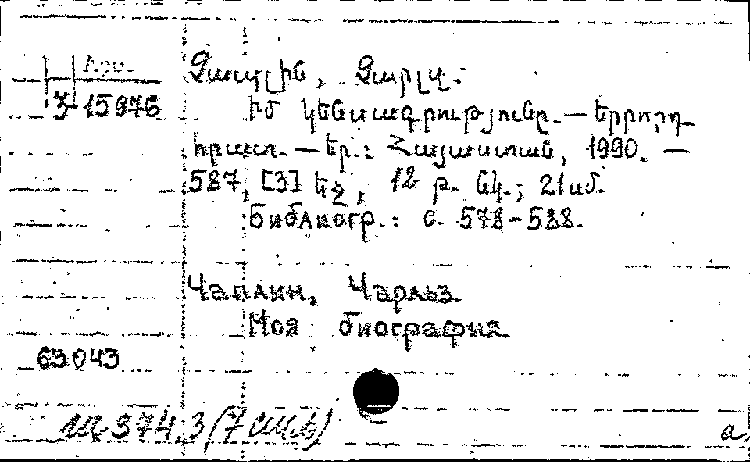 Չապլին, Չարլզ.
3-15976
Իմ կենսագրությունը. — Երրորդ
հրատ. — Եր.: Հայաստան, 1990. —
587, [3] էջ, 12 թ. նկ.; 21 սմ.
Библиогр.: с. 578-588.
Чаплин, Чарльз
Моя биография
63043
374.3 (7 США)
а